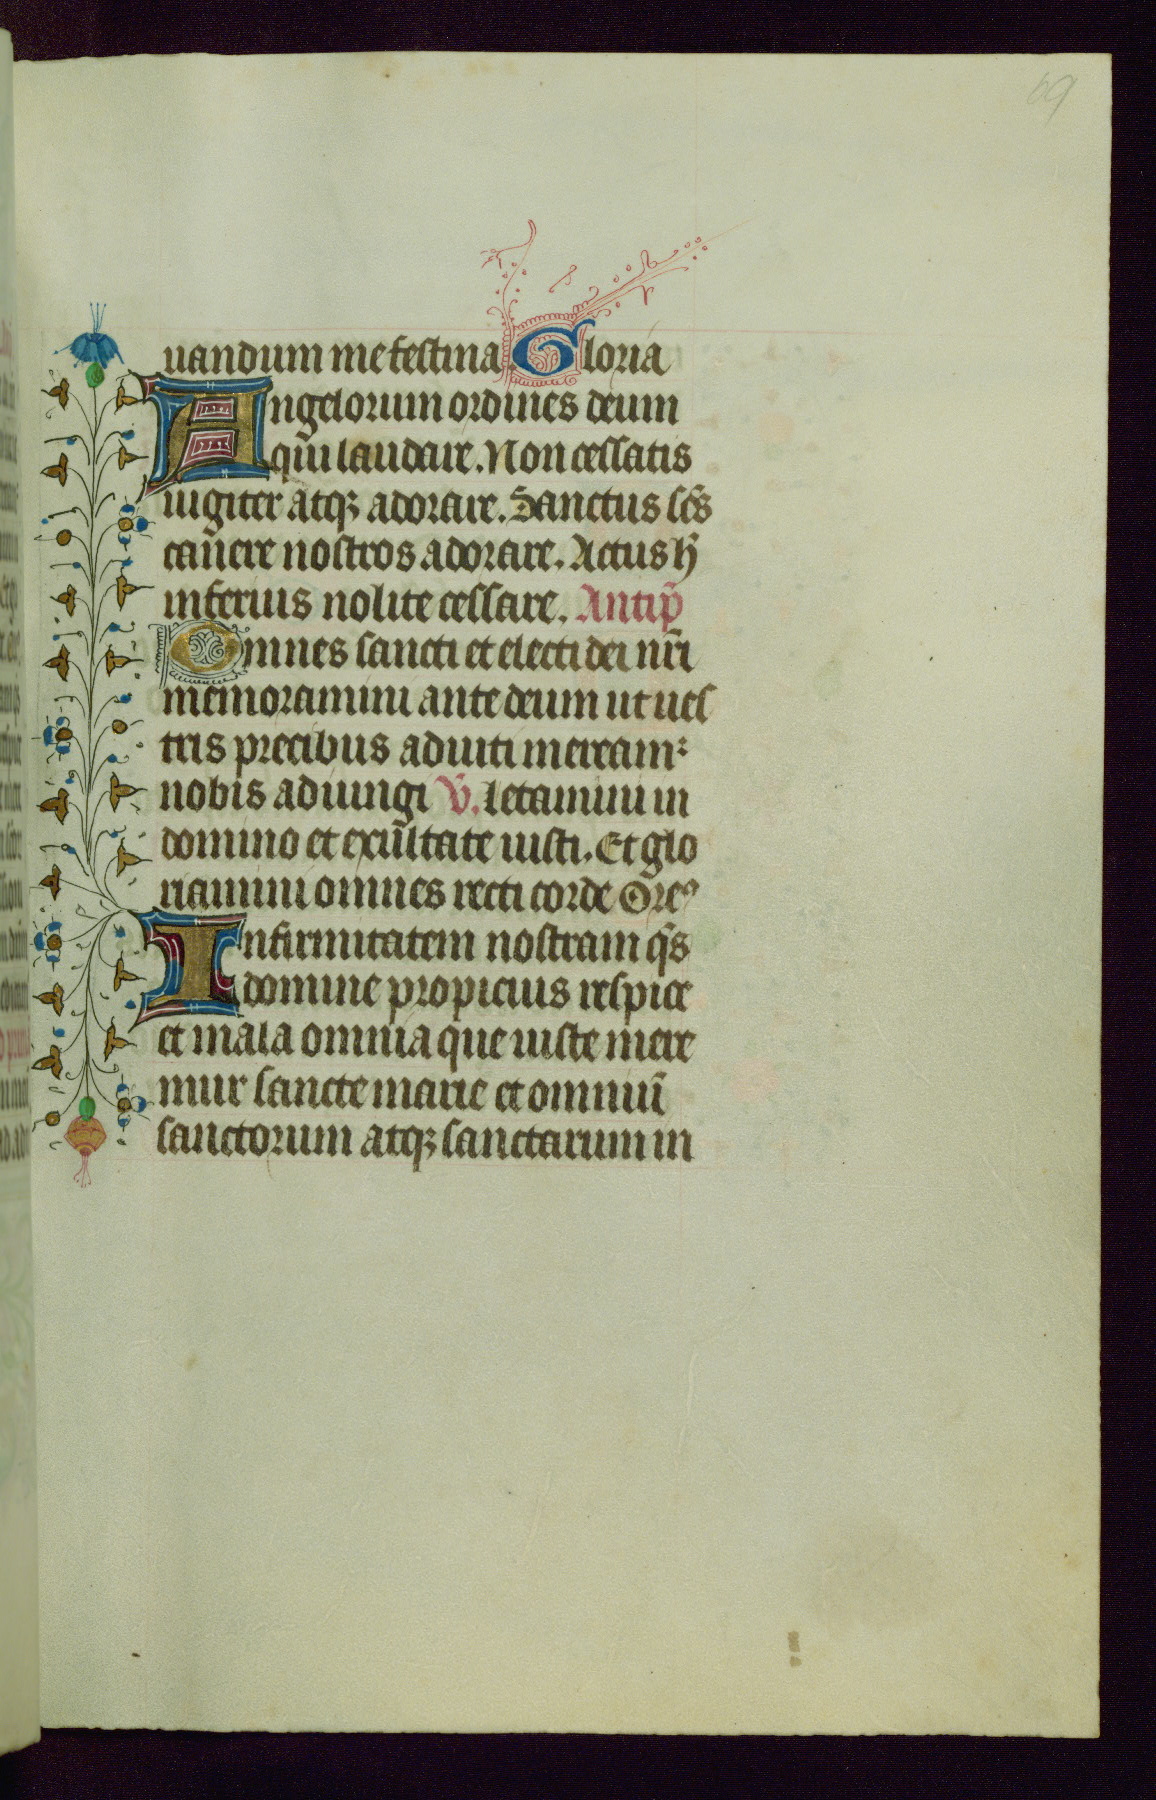 69
uandum me festina. Gloria
Angelorum ordines deum
qui laudare. Non cessatis
iugiter atqꝫ adorare. Sanctus sc̄s
cau̅ere nostros adorare. Actus h̄
inferius nolite cessare. Antip̄
Omnes sancti et electi dei nr̄i
memoramini ante deum ut ues
tris precibus adiuti meream᷑
nobis adiungi V̄. letamini in
domino et exu̅ltate iusti. Et glo
riamini omnes recti corde Oreꝰ
Infirmitatem nostram q̄s
domine propicius respice
et mala omnia que iuste mere
mur sancte marie et omniu̅
sanctorum atqꝫ sanctarum in